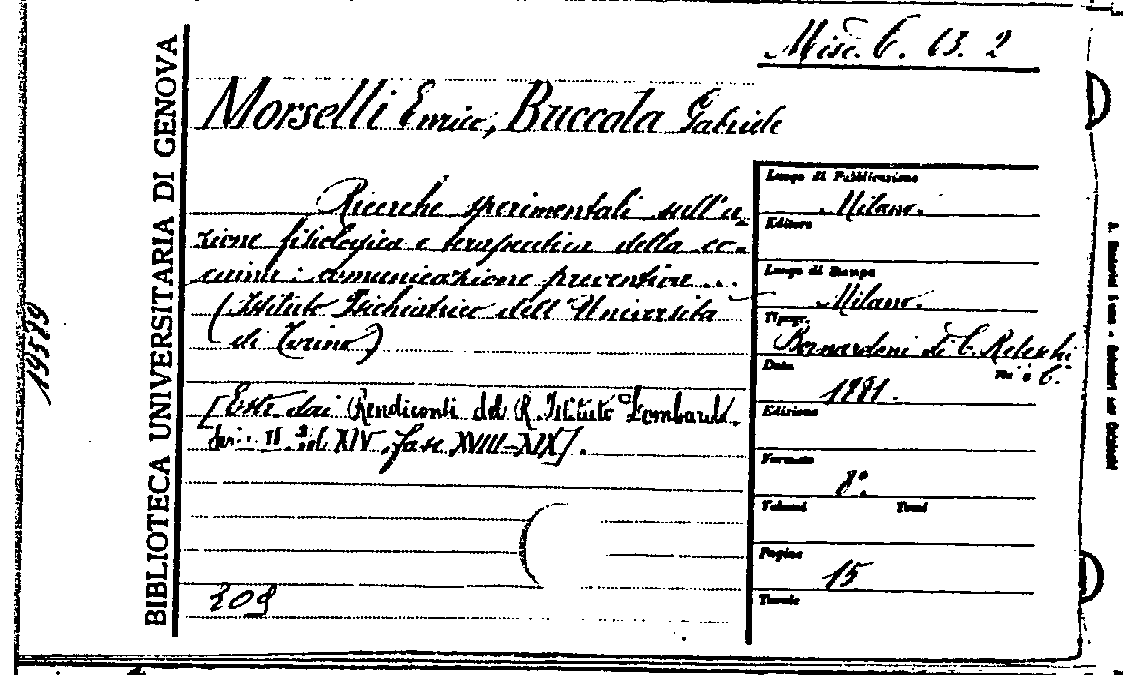 Misc. C. 13. 2
BIBLIOTECA UNIVERSITARIA DI GENOVA
Morselli Enrico, Buccola Gabriele
Ricerche sperimentali sull'a-
zione fisiologica e terapeutica della co-
caina: comunicazione preventiva...
(Istituto Psichiatrico dell'Università
di Torino)
[Estr. dai Rendiconti del R. Istituto Lombardo.
Ser. II. vol. XIV, fasc. XVIII-XIX].
209
Luogo di Pubblicazione
Milano.
Editore
Luogo di Stampa
Milano.
Tipogr.
Bernardoni di C. Rebeschi
e C.
Data
1881.
Edizione
Formato
8°.
Volumi Tomi
Pagine
15
Tavole
19579